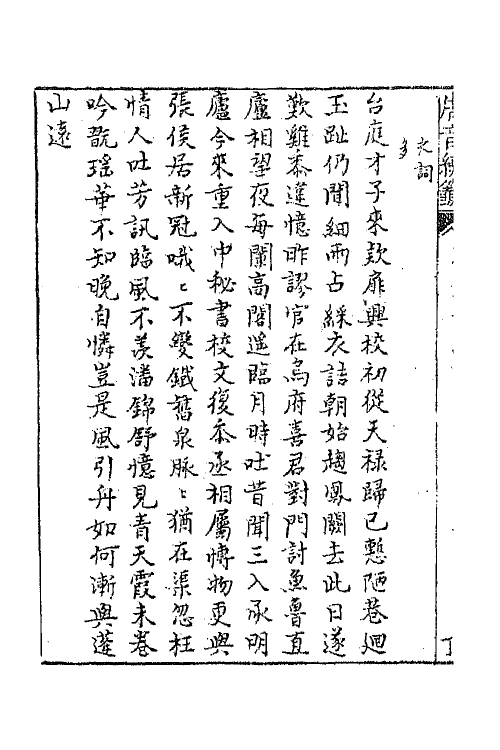 唐音統籤
文詞
多
台庭才子來款扉興校初從天祿歸已慙陋巷廻
玉趾仍聞細雨占綵衣詰朝始趨鳳闕去此日遂
歎雞黍違憶昨謬官在烏府喜君對門討魚魯直
廬相望夜每闌高閣遙臨月時吐昔聞三入承明
廬今來重入中秘書校文復忝丞相屬博物更與
張侯居新冠峩〻不變鐵舊泉脈〻猶在渠忽枉
情人吐芳訊臨風不羨潘錦舒憶見青天霞未卷
吟翫瑶華不知晚自憐豈是風引舟如何漸與蓬
山遠